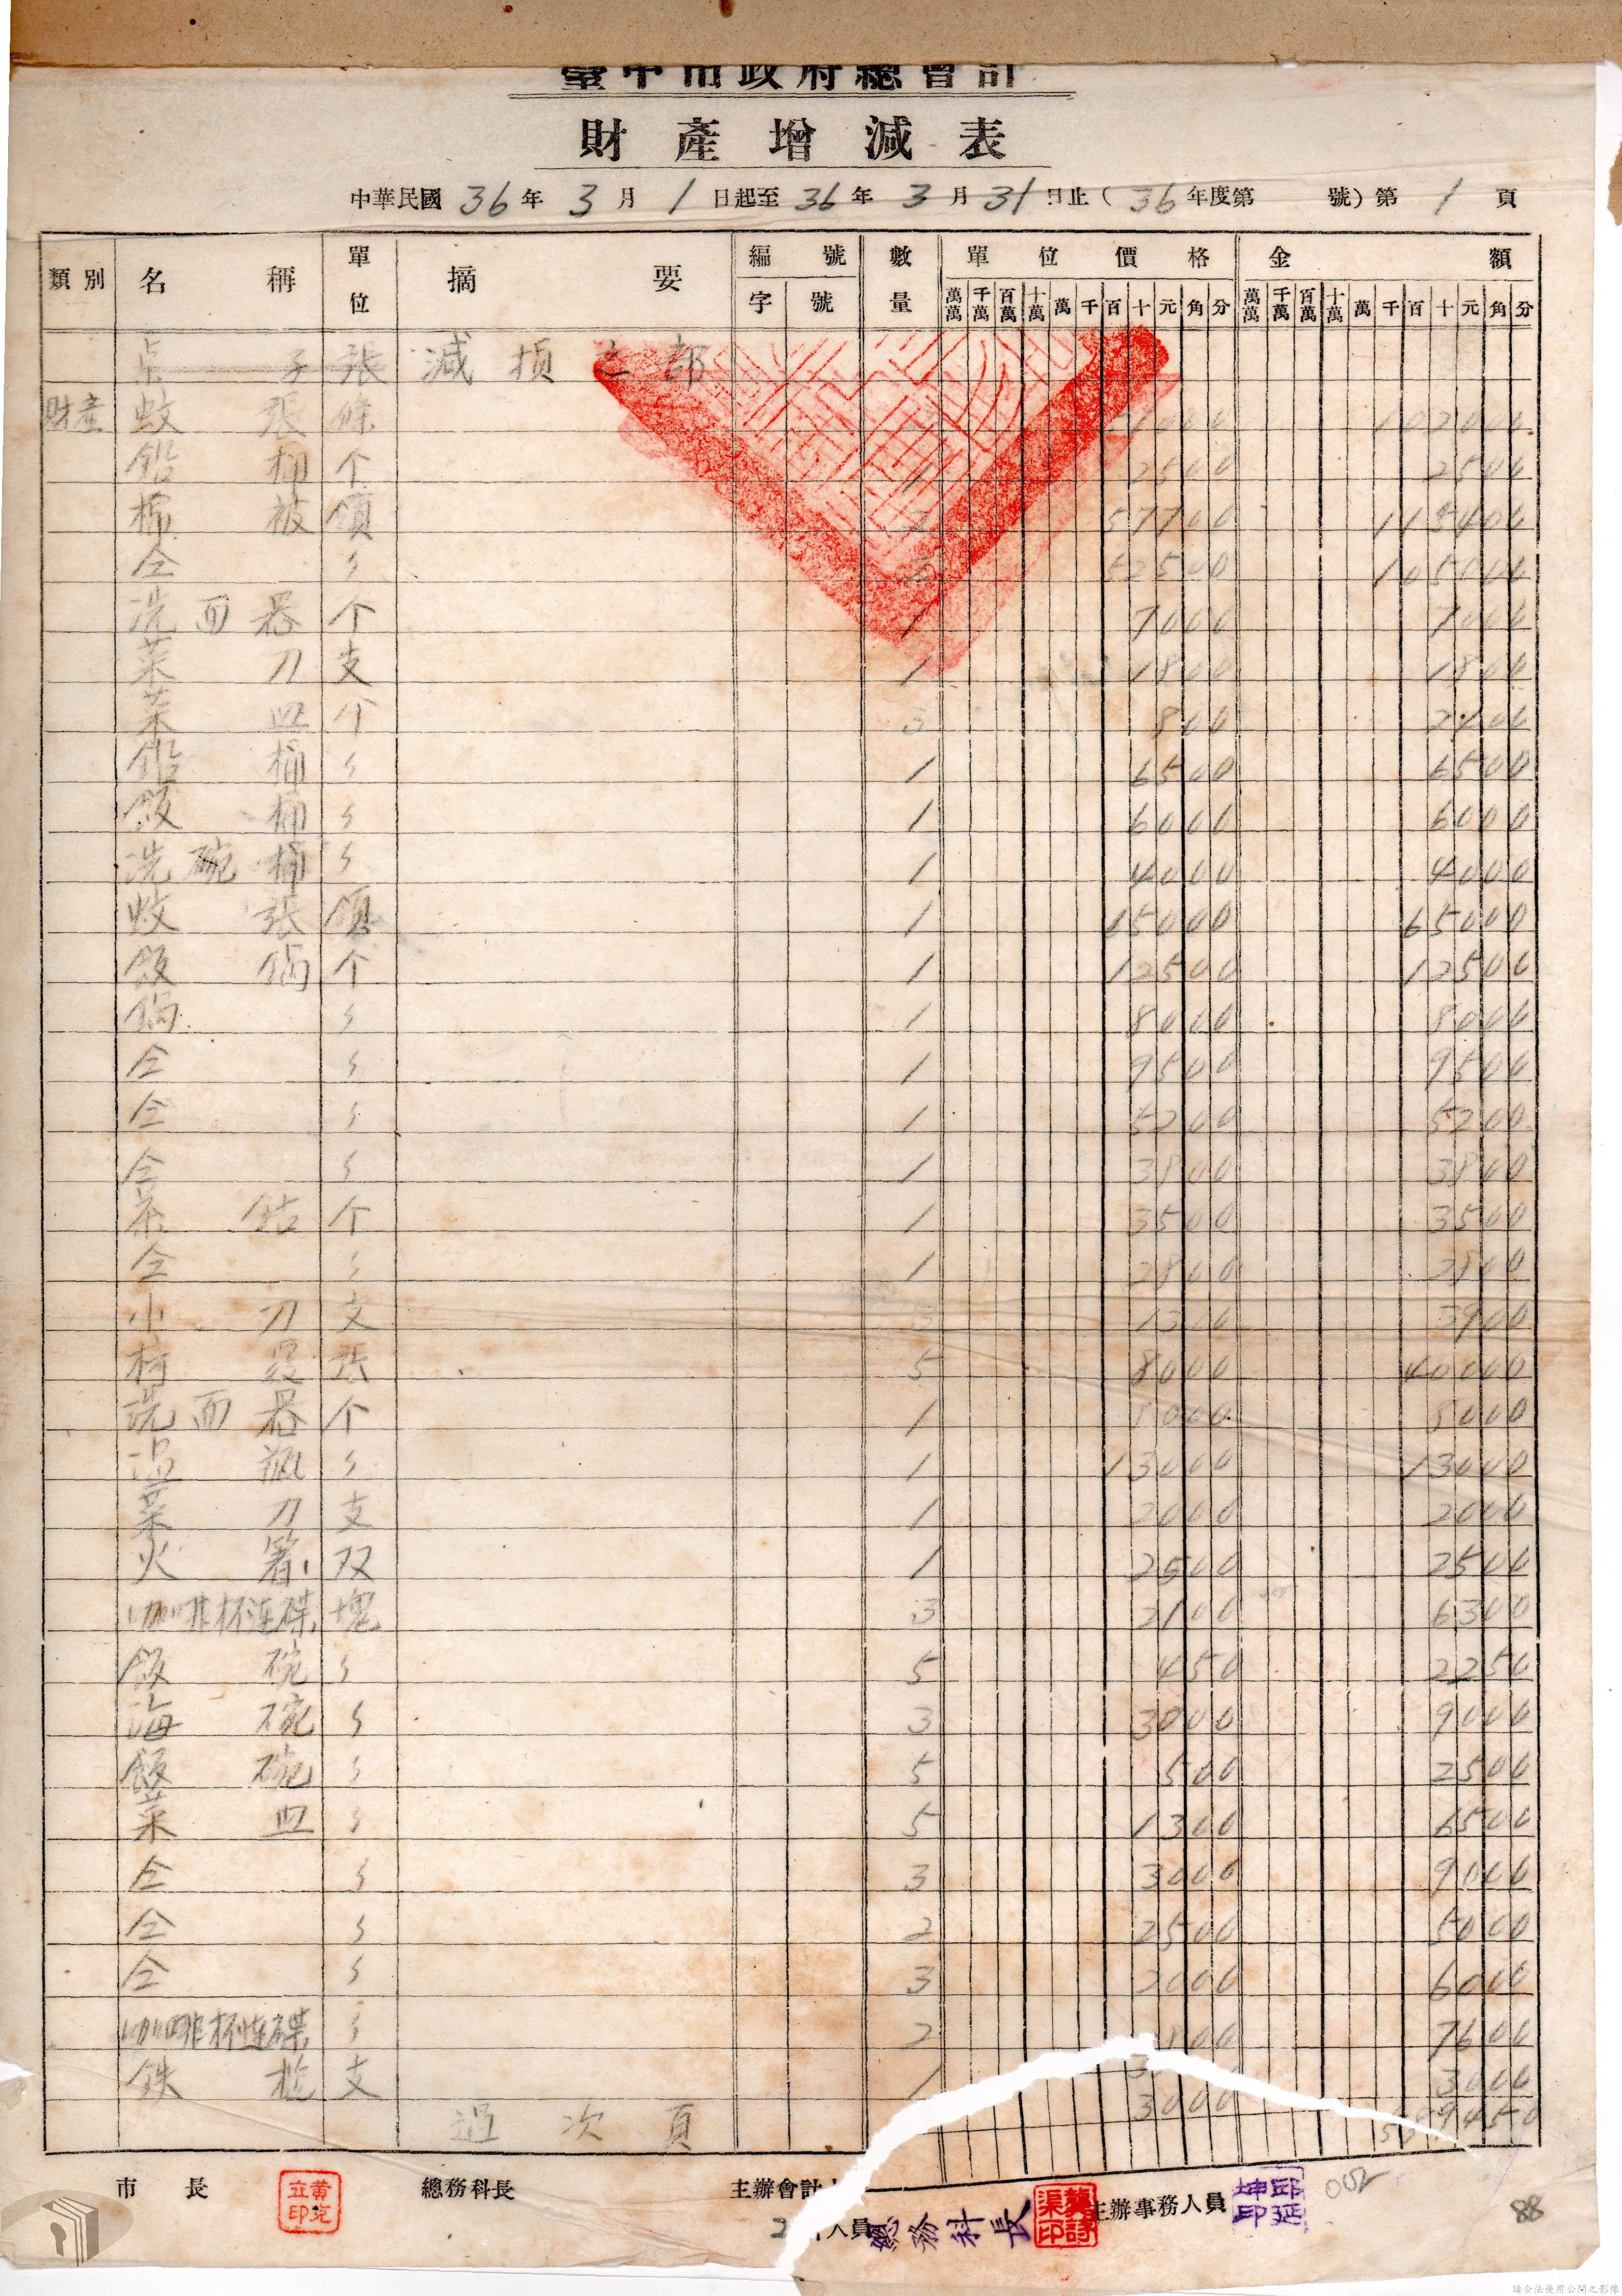 臺中市政府總會計
財產增減表
中華民國36年3月1日起至36年3月31日止(36年度第 號)第1頁
類別 名稱 單位 摘要 編號 數量 單位價格 金額
字 號 萬萬 千萬 百萬 十萬 萬 千 百 十 元 角 分 萬萬 千萬 百萬 十萬 萬 千 百 十 元 角 分
子 張 減損之部
財產 蚊張 條 102000
鉛桶 个 1 2500 2500
棉被 領 2 57700 115400
仝 〃 2 52500 105000
洗面器 个 1 7000 7000
菜刀 支 1 1800 1800
菜皿 个 3 800 2400
鉛桶 〃 1 6500 6500
飯桶 〃 1 6000 6000
洗碗桶 〃 1 4000 4000
蚊張 領 1 65000
飯鍋 个 1 12500 12500
鍋 〃 1 8000 8000
仝 〃 1 9500 9500
仝 〃 1 5200 5200
仝 〃 1 3800 3800
茶鈷 个 1 3500 3500
仝 〃 1 2800 2800
小刀 支 3 1300 3900
張 5 8000 40000
洗面器 个 1 8000 8000
温瓶 〃 1 13000 13000
菜刀 支 1 2000 2000
火箸 双 1 2500 2500
咖啡杯連碟 塊 3 2100 6300
飯碗 〃 5 450 2250
海碗 〃 3 3000 9000
飯碗 〃 5 500 2500
菜皿 〃 5 1300 6500
仝 〃 3 3000 9000
仝 〃 2 2500 5000
仝 〃 3 2000 6000
咖啡杯連碟 〃 2 800 7600
鉄 支 1 3000 3000
過次頁
市長 總務科長 主辦會計 人員 總務科長 主辦事務人員 邱延坤印
002
88
請合法使用公開之影像